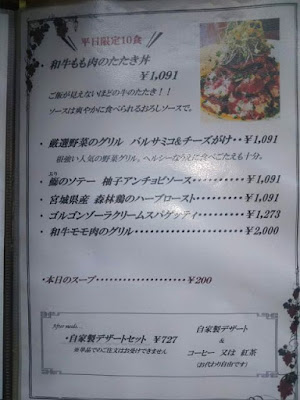 平日限定10食
・和牛もも肉のたたき丼
￥1,091
ご飯が見えないほどの牛のたたき！！
ソースは爽やかに食べられるおろしソースで。
・厳選野菜のグリル バルサミコ&チーズがけ・・￥1,091
根強い人気の野菜グリル。ヘルシーなうえに食べごたえも十分。
ぶり
・鰤のソテー 柚子アンチョビソース・・・・・・・・・￥1,091
・宮城県産 森林鶏のハーブロースト・・・・・・・・￥1,091
・ゴルゴンゾーラクリームスパゲッティ・・・・・・・￥1,273
・和牛モモ肉のグリル・・・・・・・・・・・・・・・・・￥2,000
・本日のスープ・・・・・・・・・・・・・・・・・・￥200
After meals...
・自家製デザートセット ￥727
※単品でのご注文はお受けできません
自家製デザート
&
コーヒー 又は 紅茶
(おかわり自由です)